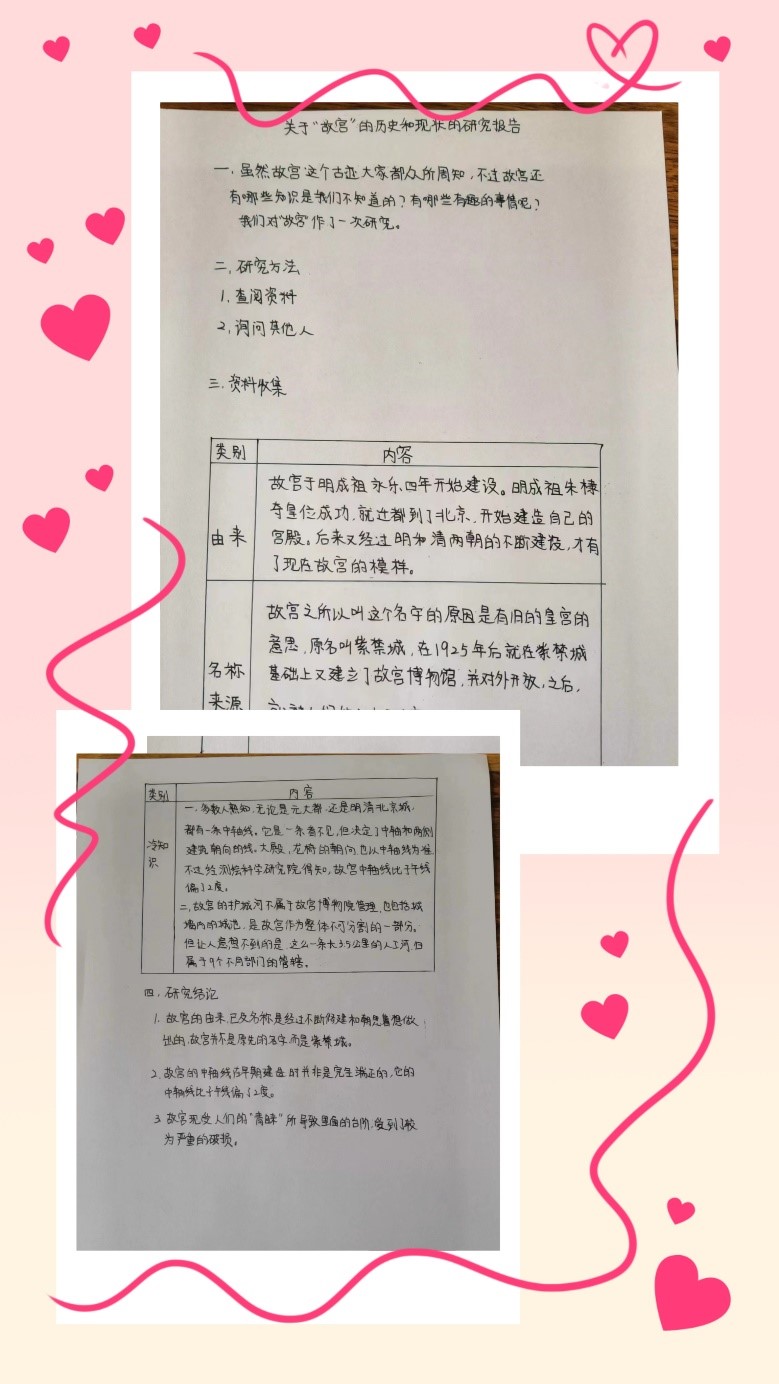 关于“故宫”的历史和现状的研究报告
一、虽然故宫这个古迹大家都众所周知，不过故宫还
有哪些知识是我们不知道的？有哪些有趣的事情吧？
我们对“故宫”作了一次研究。
二、研究方法
1、查阅资料
2、询问其他人
三、资料收集
类别 内容
由来
故宫于明成祖永乐四年开始建设。明成祖朱棣
夺皇位成功，就迁都到了北京，开始建造自己的
宫殿。后来又经过明和清两朝的不断建设，才有
了现在故宫的模样。
名称
来源
故宫之所以叫这个名字的原因是有旧的皇宫的
意思，原名叫紫禁城，在1925年后就在紫禁城
基础上又建立了故宫博物馆，并对外开放，之后，
类别 内容
冷知
识
一、多数人熟知，无论是元大都，还是明清北京城，
都有一条中轴线。它是一条看不见，但决定了中轴和两侧
建筑朝向的线。大殿，龙椅的朝向，也以中轴线为准
不过经测绘科学研究院得知，故宫中轴线比子午线
偏了2度。
二、故宫的护城河不属于故宫博物院管理，也包括城
墙内的城池，是故宫作为整体不可分割的一部分。
但让人意想不到的是，这么一条长3.5公里的人工河，归
属于9个不同部门的管辖。
四、研究结论
1、故宫的由来，已及名称是经过不断做
出的，故宫并不是原先的名字，而是紫禁城。
2、故宫的中轴线在早期建造时并非是完全端正的，它的
中轴线比子午线偏了2度。
3、故宫现受人们的“青睐”所导致里面的台阶，受到了较
为严重的破损。